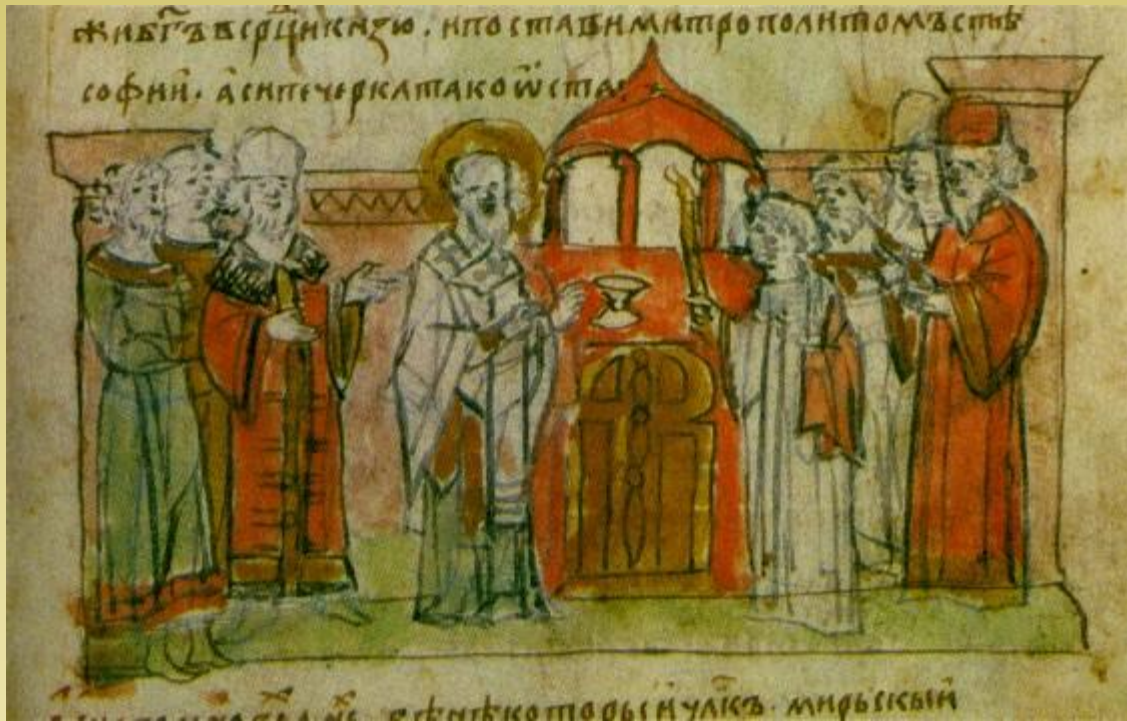 жи бг҃ъ в срⷣци кнѧзю . и постави митрополитомъ ст҃ѣ
софии . а си печерка тако ѡста
бѣ нѣкоторыи члк҃ъ . мирьскыи